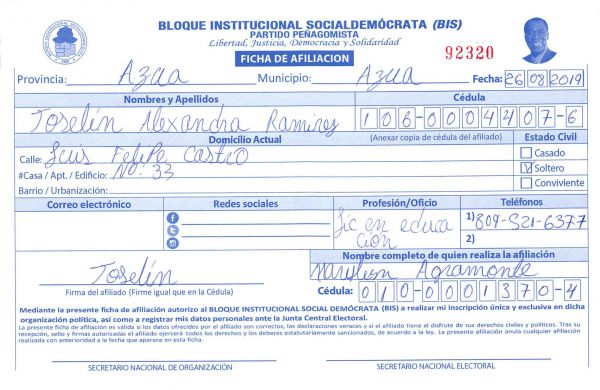 BLOQUE INSTITUCIONAL SOCIALDEMÓCRATA (BIS)
PARTIDO PEÑAGOMISTA
Libertad, Justicia, Democracia y Solidaridad
FICHA DE AFILIACION
92320
Provincia: Azua Municipio: Azua Fecha: 26 08 2019
Nombres y Apellidos Cédula
Joselín Alexandra Ramirez 106-0004407-6
Domicilio Actual (Anexar copia de cédula del afiliado) Estado Civil
Calle: Luis Felipe Castro
#Casa / Apt. / Edificio: No: 33
Barrio / Urbanización:
Casado
Soltero
Conviviente
Correo electrónico Redes sociales Profesión/Oficio Teléfonos
Lic en educa
ción
1) 809-521-6377
2)
Nombre completo de quien realiza la afiliación
Joselín Agramonte
Firma del afiliado (Firme igual que en la Cédula) Cédula: 010-0001370-4
Mediante la presente ficha de afiliación autorizo al BLOQUE INSTITUCIONAL SOCIAL DEMÓCRATA (BIS) a realizar mi inscripción única y exclusiva en dicha
organización política, así como a registrar mis datos personales ante la Junta Central Electoral.
La presente ficha de afiliación es válida si los datos ofrecidos por el afiliado son correctos, las declaraciones veraces y si el afiliado tiene el disfrute de sus derechos civiles y políticos. Tras su
recepción, sello y firmas autorizadas el afiliado ejercerá todos los derechos y los deberes estatutariamente sancionados, de acuerdo a la ley. La presente afiliación anula cualquier afiliación
realizada con anterioridad a la fecha que aparece en esta ficha.
SECRETARIO NACIONAL DE ORGANIZACIÓN SECRETARIO NACIONAL ELECTORAL